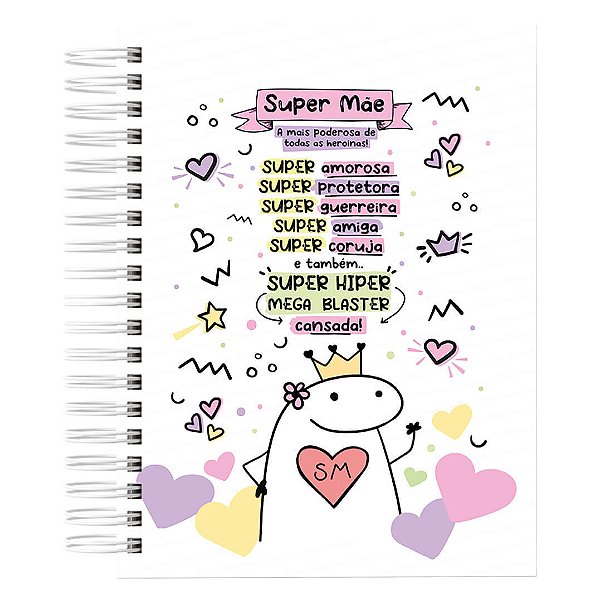 Super Mãe
A mais poderosa de
todas as heroinas!
SUPER amorosa
SUPER protetora
SUPER guerreira
SUPER amiga
SUPER coruja
e também..
SUPER HIPER
MEGA BLASTER
cansada!
SM